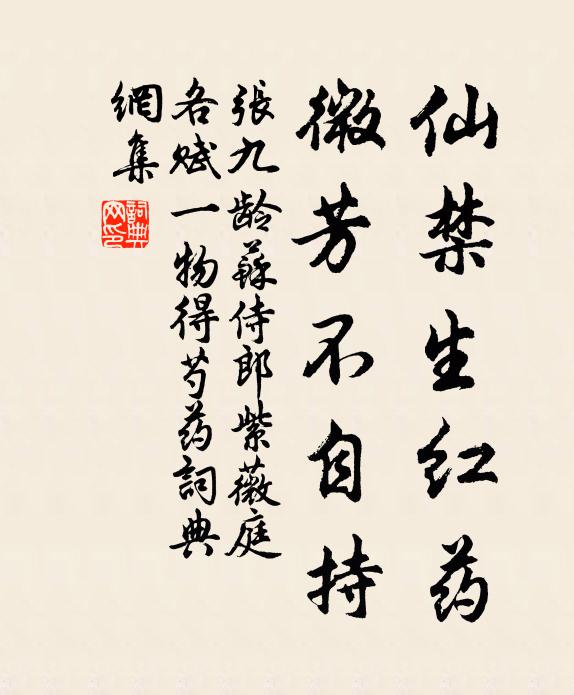 仙禁生红药
微芳不自持
張九龄蘇侍郎紫薇庭
各赋一物得芍药詞典
網集
詞典网印